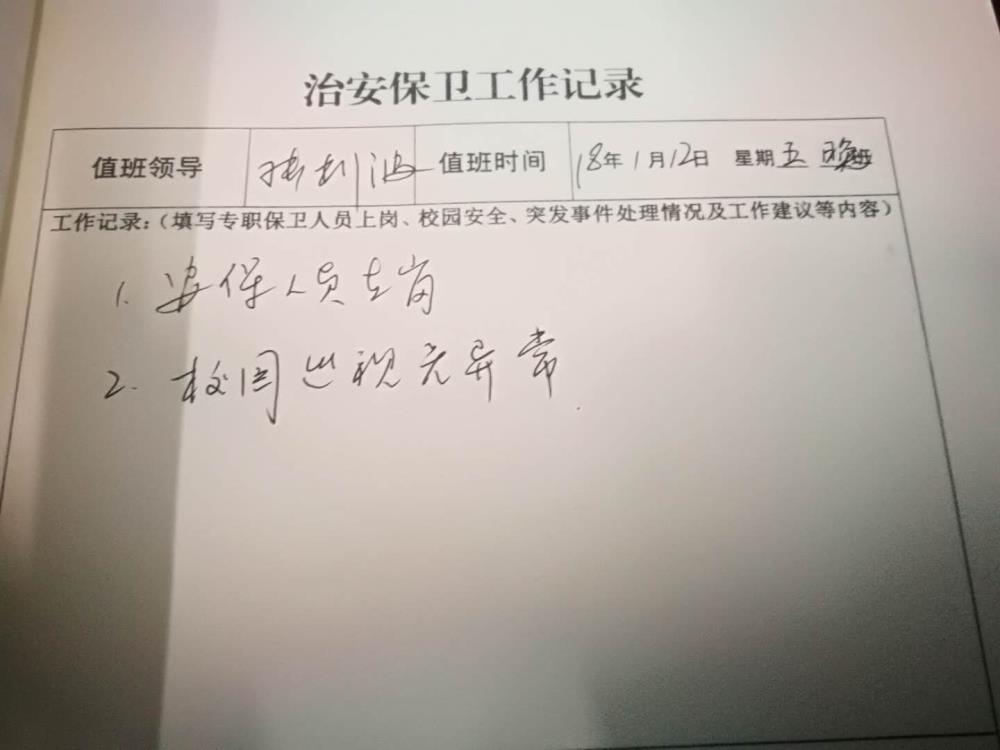 治安保卫工作记录
值班领导 值班时间 18年1月12日 星期五 晚班
工作记录:(填写专职保卫人员上岗、校园安全、突发事件处理情况及工作建议等内容)
1. 安保人员在岗
2. 校园巡视无异常.